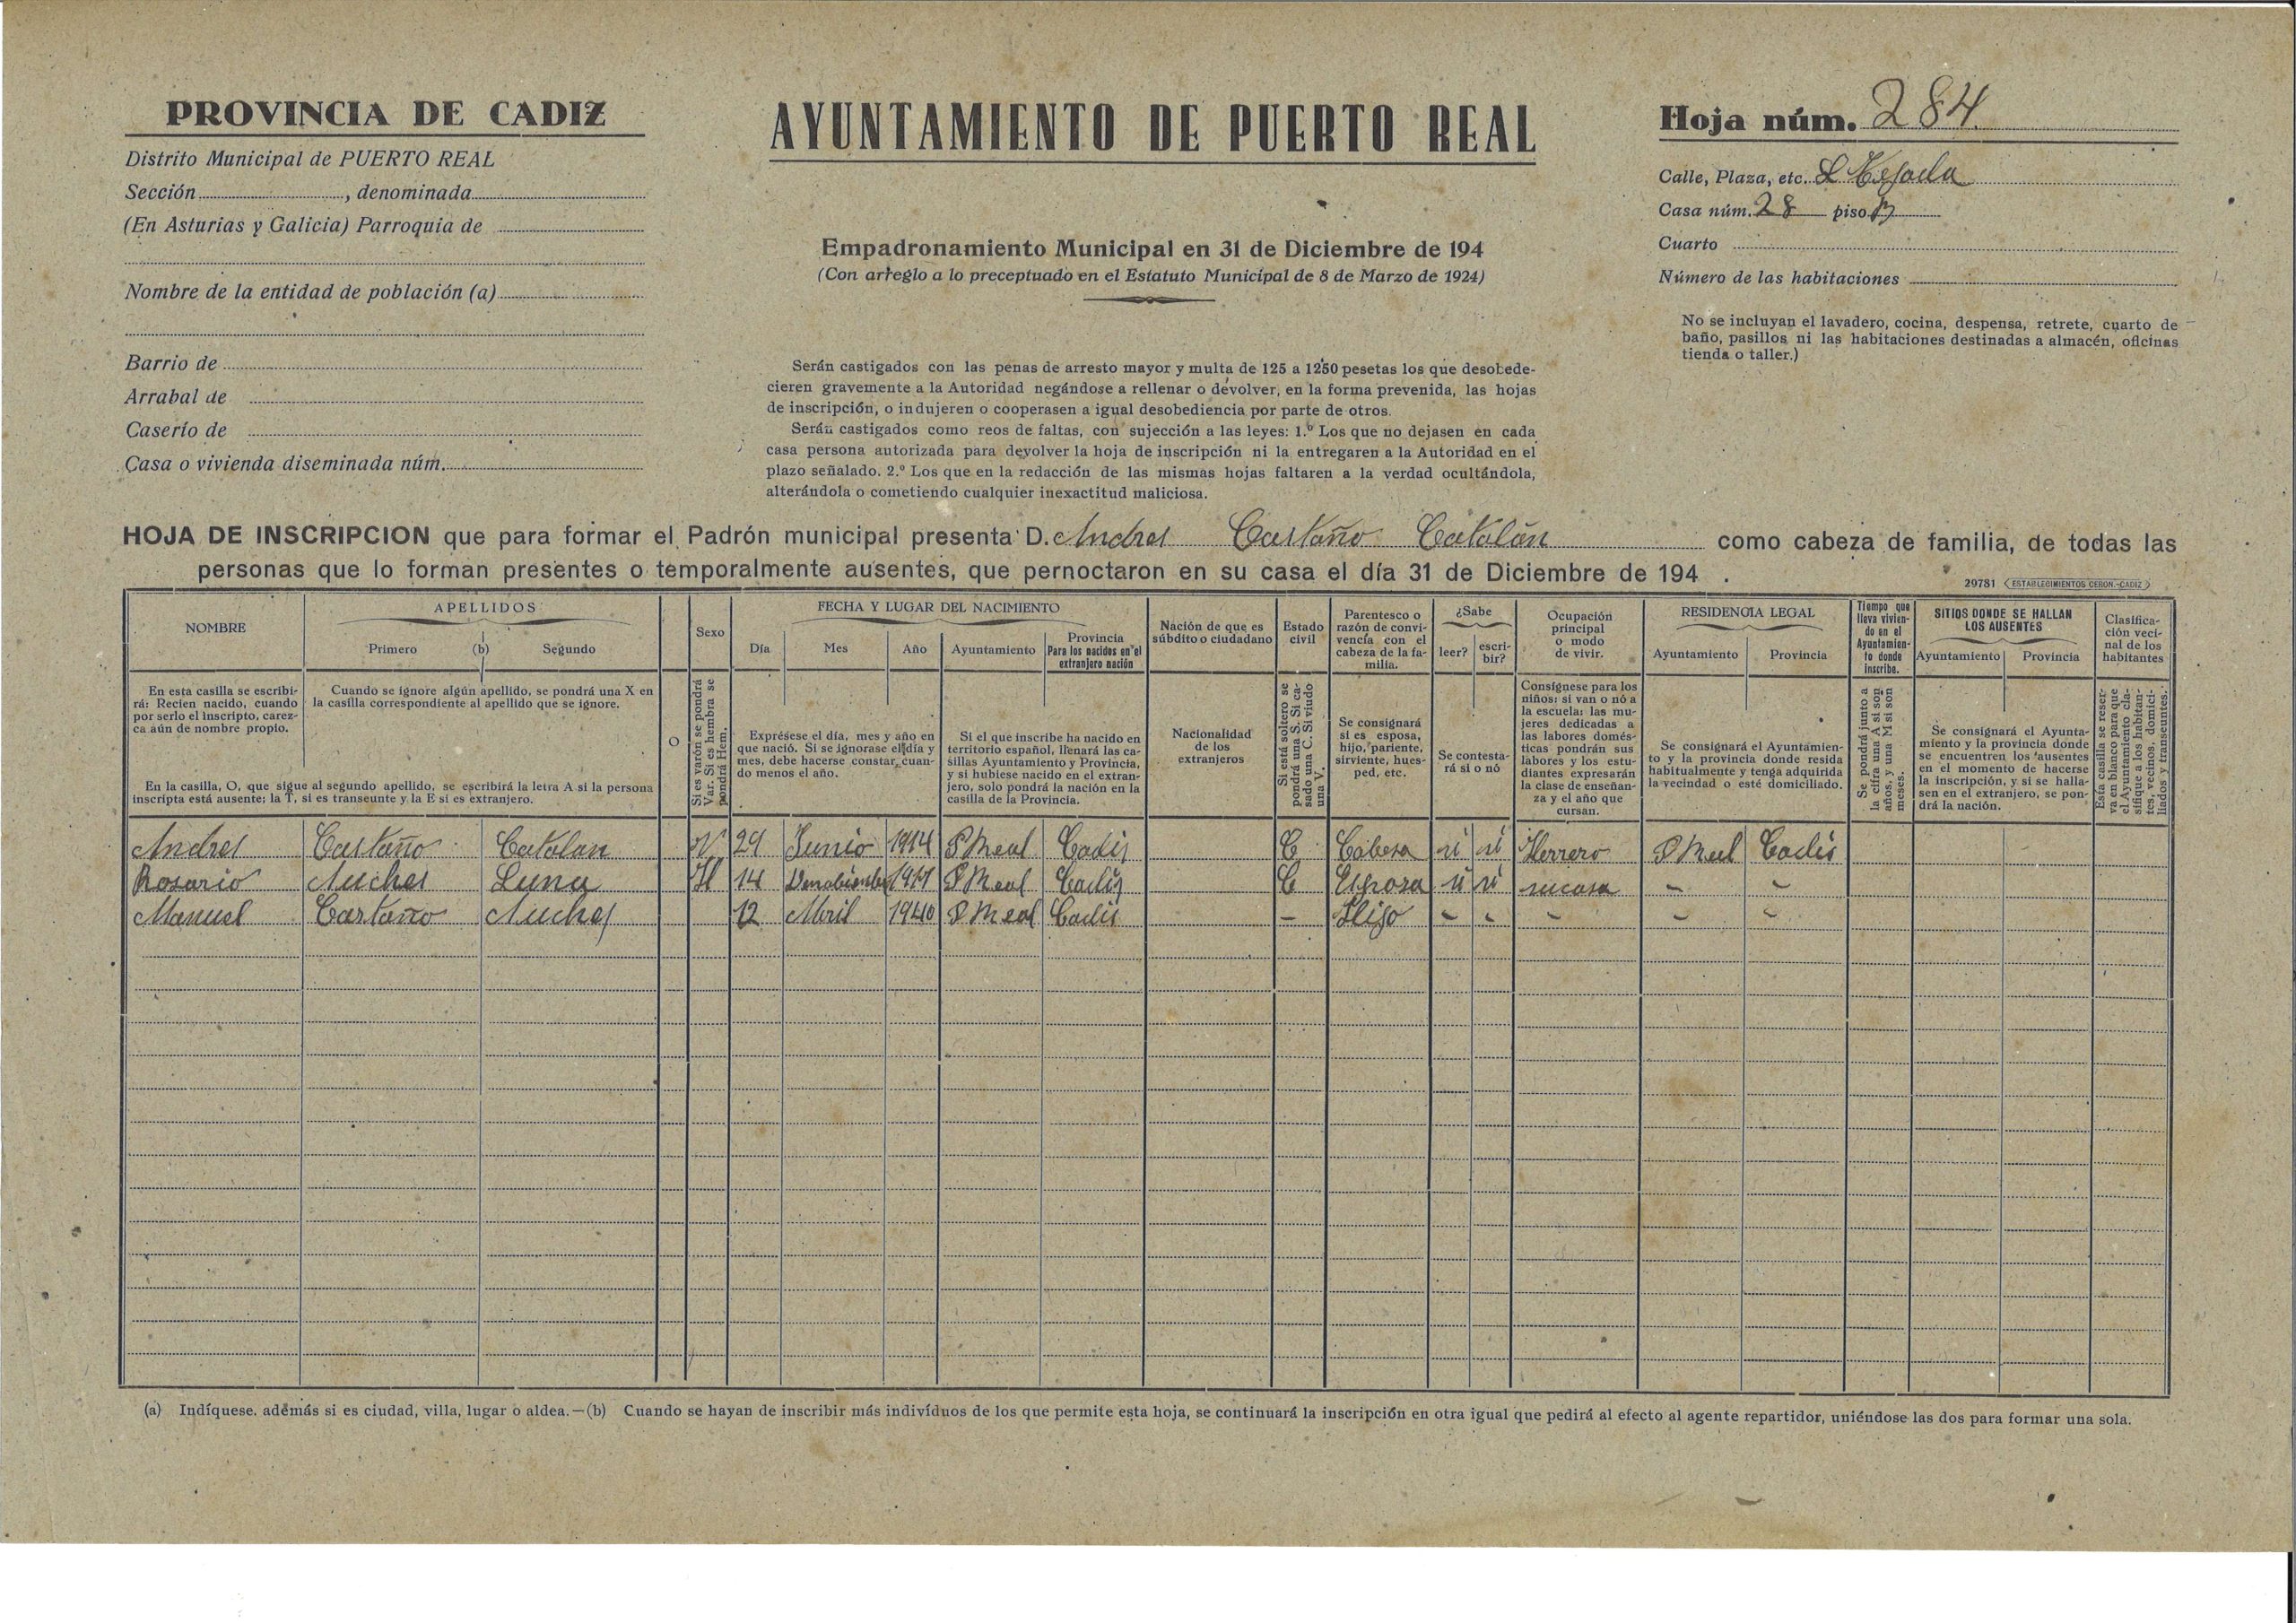 PROVINCIA DE CADIZ
Distrito Municipal de PUERTO REAL
Sección , denominada
(En Asturias y Galicia) Parroquia de
Nombre de la entidad de población (a)
Barrio de
Arrabal de
Caserío de
Casa o vivienda diseminada núm.
AYUNTAMIENTO DE PUERTO REAL
Empadronamiento Municipal en 31 de Diciembre de 194
(Con arreglo a lo preceptuado en el Estatuto Municipal de 8 de Marzo de 1924)
Serán castigados con las penas de arresto mayor y multa de 125 a 1250 pesetas los que desobede-
cieren gravemente a la Autoridad negándose a rellenar o devolver, en la forma prevenida, las hojas
de inscripción, o indujeren o cooperasen a igual desobediencia por parte de otros.
Serán castigados como reos de faltas, con sujección a las leyes: 1.º Los que no dejasen en cada
casa persona autorizada para devolver la hoja de inscripción ni la entregaren a la Autoridad en el
plazo señalado. 2.º Los que en la redacción de las mismas hojas faltaren a la verdad ocultándola,
alterándola o cometiendo cualquier inexactitud maliciosa.
Hoja núm. 284
Calle, Plaza, etc. Tejada
Casa núm. 28 piso
Cuarto
Número de las habitaciones
No se incluyan el lavadero, cocina, despensa, retrete, cuarto de
baño, pasillos ni las habitaciones destinadas a almacén, oficinas
tienda o taller.)
HOJA DE INSCRIPCION que para formar el Padrón municipal presenta D. Andres Castaño Catalán como cabeza de familia, de todas las
personas que lo forman presentes o temporalmente ausentes, que pernoctaron en su casa el día 31 de Diciembre de 194 .
29781 ESTABLECIMIENTOS CERON.-CADIZ
NOMBRE
APELLIDOS
Primero (b) Segundo
Sexo
FECHA Y LUGAR DEL NACIMIENTO
Día Mes Año Ayuntamiento
Provincia
Para los nacidos en el
extranjero nación
Nación de que es
súbdito o ciudadano
Estado
civil
Parentesco o
razón de convi-
vencia con el
cabeza de la fa-
milia.
¿Sabe
leer? escri-
bir?
Ocupación
principal
o modo
de vivir.
RESIDENCIA LEGAL
Ayuntamiento Provincia
Tiempo que
lleva vivien-
do en el
Ayuntamien-
to donde
inscribe.
SITIOS DONDE SE HALLAN
LOS AUSENTES
Ayuntamiento Provincia
Clasifica-
ción veci-
nal de los
habitantes
En esta casilla se escribi-
rá: Recien nacido, cuando
por serlo el inscripto, carez-
ca aún de nombre propio.
Cuando se ignore algún apellido, se pondrá una X en
la casilla correspondiente al apellido que se ignore.
En la casilla, O, que sigue al segundo apellido, se escribirá la letra A si la persona
inscripta está ausente; la T, si es transeunte y la E si es extranjero.
O
Si es varón se pondrá
Var. Si es hembra se
pondrá Hem.
Exprésese el día, mes y año en
que nació. Si se ignorase el día y
mes, debe hacerse constar, cuan-
do menos el año.
Si el que inscribe ha nacido en
territorio español, llenará las ca-
sillas Ayuntamiento y Provincia,
y si hubiese nacido en el extran-
jero, solo pondrá la nación en la
casilla de la Provincia.
Nacionalidad
de los
extranjeros
Si está soltero se
pondrá una S. Si ca-
sado una C. Si viudo
una V.
Se consignará
si es esposa,
hijo, pariente,
sirviente, hues-
ped, etc.
Se contesta-
rá si o nó
Consígnese para los
niños: si van o nó a
la escuela: las mu-
jeres dedicadas a
las labores domés-
ticas pondrán sus
labores y los estu-
diantes expresarán
la clase de enseñan-
za y el año que
cursan.
Se consignará el Ayuntamien-
to y la provincia donde resida
habitualmente y tenga adquirida
la vecindad o esté domiciliado.
Se pondrá junto a
la cifra una A si son
años, y una M si son
meses.
Se consignará el Ayunta-
miento y la provincia donde
se encuentren los ausentes
en el momento de hacerse
la inscripción, y si se halla-
sen en el extranjero, se pon-
drá la nación.
Esta casilla se reser-
va en blanco para que
el Ayuntamiento cla-
sifique a los habitan-
tes, vecinos, domici-
liados y transeuntes.
Andres Castaño Catalan V 29 Junio 1914 P Real Cadiz C Cabesa si si Herrero P Real Cadis
Rosario Luna H 14 P Real Cadiz C Esposa si si sucasa - -
Manuel Castaño 12 Abril 1940 P Real Cadis - Hijo - - - - -
(a) Indíquese. además si es ciudad, villa, lugar o aldea.—(b) Cuando se hayan de inscribir más indivíduos de los que permite esta hoja, se continuará la inscripción en otra igual que pedirá al efecto al agente repartidor, uniéndose las dos para formar una sola.